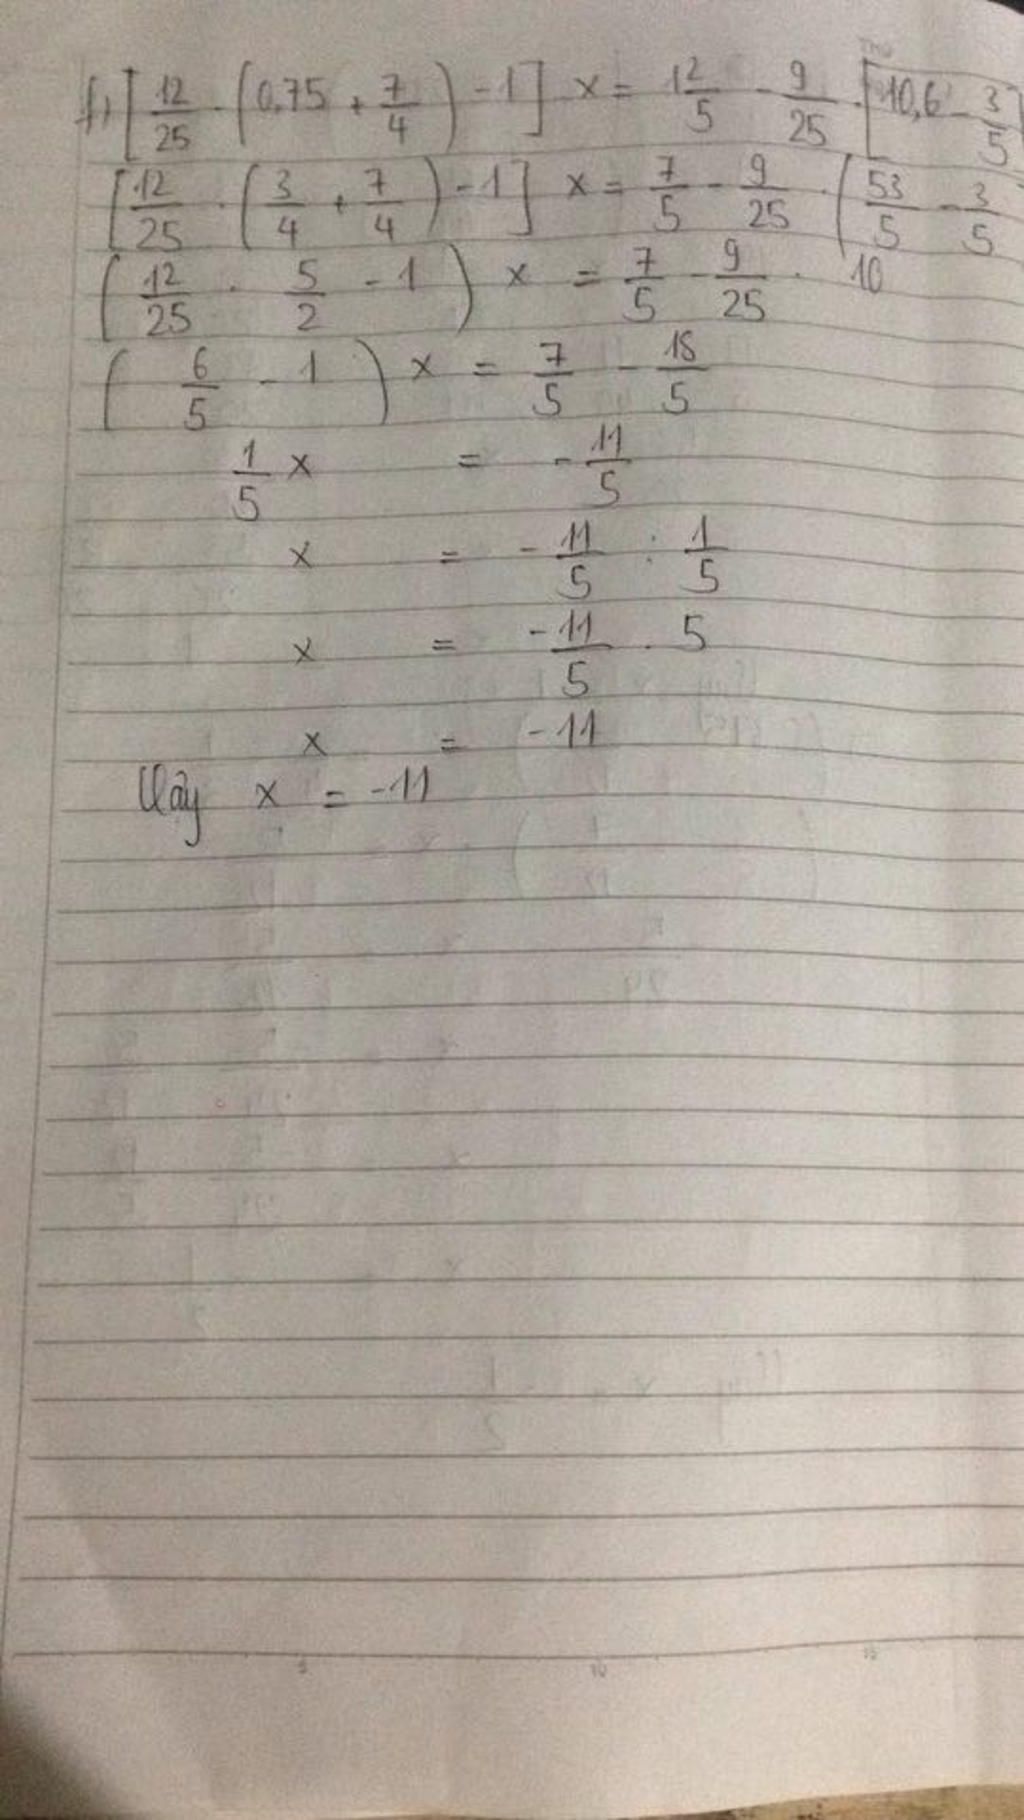 f) [12/25 . (0,75 + 7/4) - 1] x = 1 2/5 - 9/25 . [10,6 - 3/5]
[12/25 . (3/4 + 7/4) - 1] x = 7/5 - 9/25 . (53/5 - 3/5
(12/25 . 5/2 - 1) x = 7/5 - 9/25 . 10
(6/5 - 1) x = 7/5 - 18/5
1/5 x = -11/5
x = -11/5 : 1/5
x = -11/5 . 5
x = -11
Vậy x = -11
5 10 15